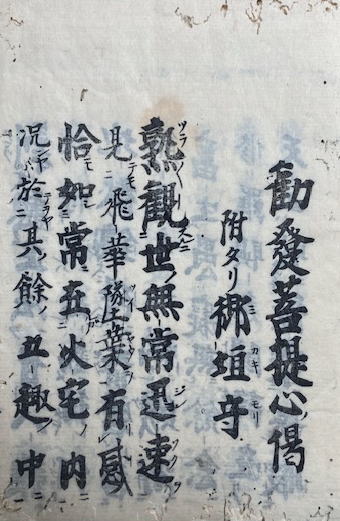 勸發菩提心偈
附タリ御垣守
熟觀世無常迅速
見飛華墜葉有感
恰如常在火宅内
况於其餘五趣中